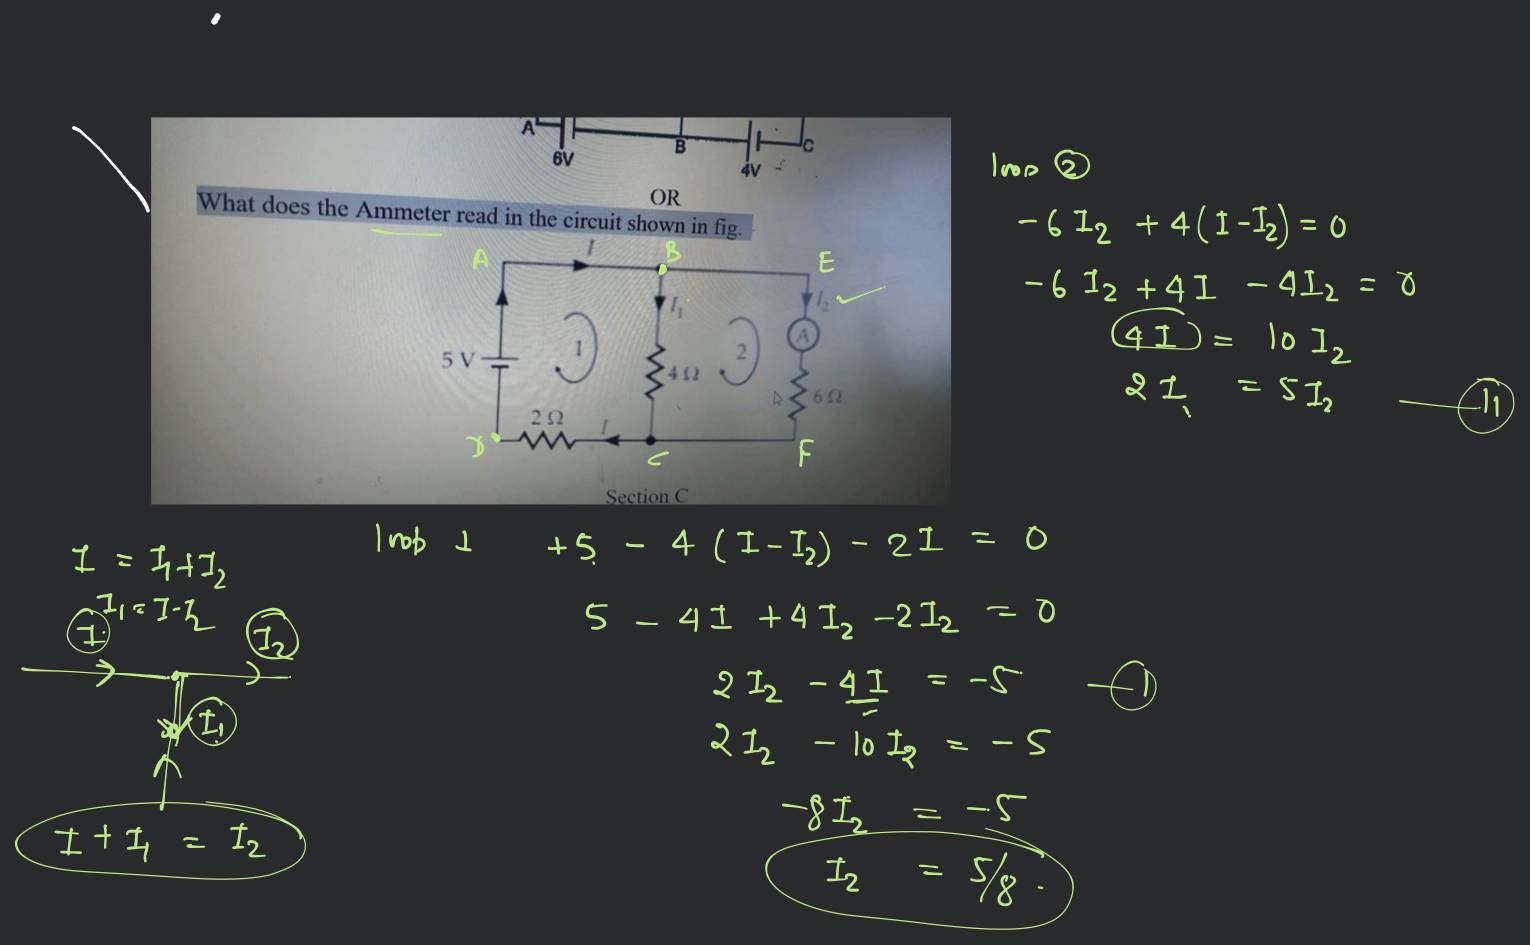 A
6V
B
4V
C
OR
What does the Ammeter read in the circuit shown in fig.
A
I
B
E
I₁
I₂
5 V
1
4 Ω
2
A
6 Ω
2 Ω
I
D
C
F
Section C
loop ②
-6 I₂ + 4(I-I₂) = 0
-6 I₂ + 4I - 4I₂ = 0
4I = 10 I₂
2I = 5I₂ — 11
I = I₁+I₂
I₁ = I-I₂
I
I₂
I₁
I + I₁ = I₂
loop 1 +5 - 4 (I-I₂) - 2I = 0
5 - 4I + 4I₂ - 2I₂ = 0
2I₂ - 4I = -5 — 1
2I₂ - 10 I₂ = -5
-8I₂ = -5
I₂ = 5/8.